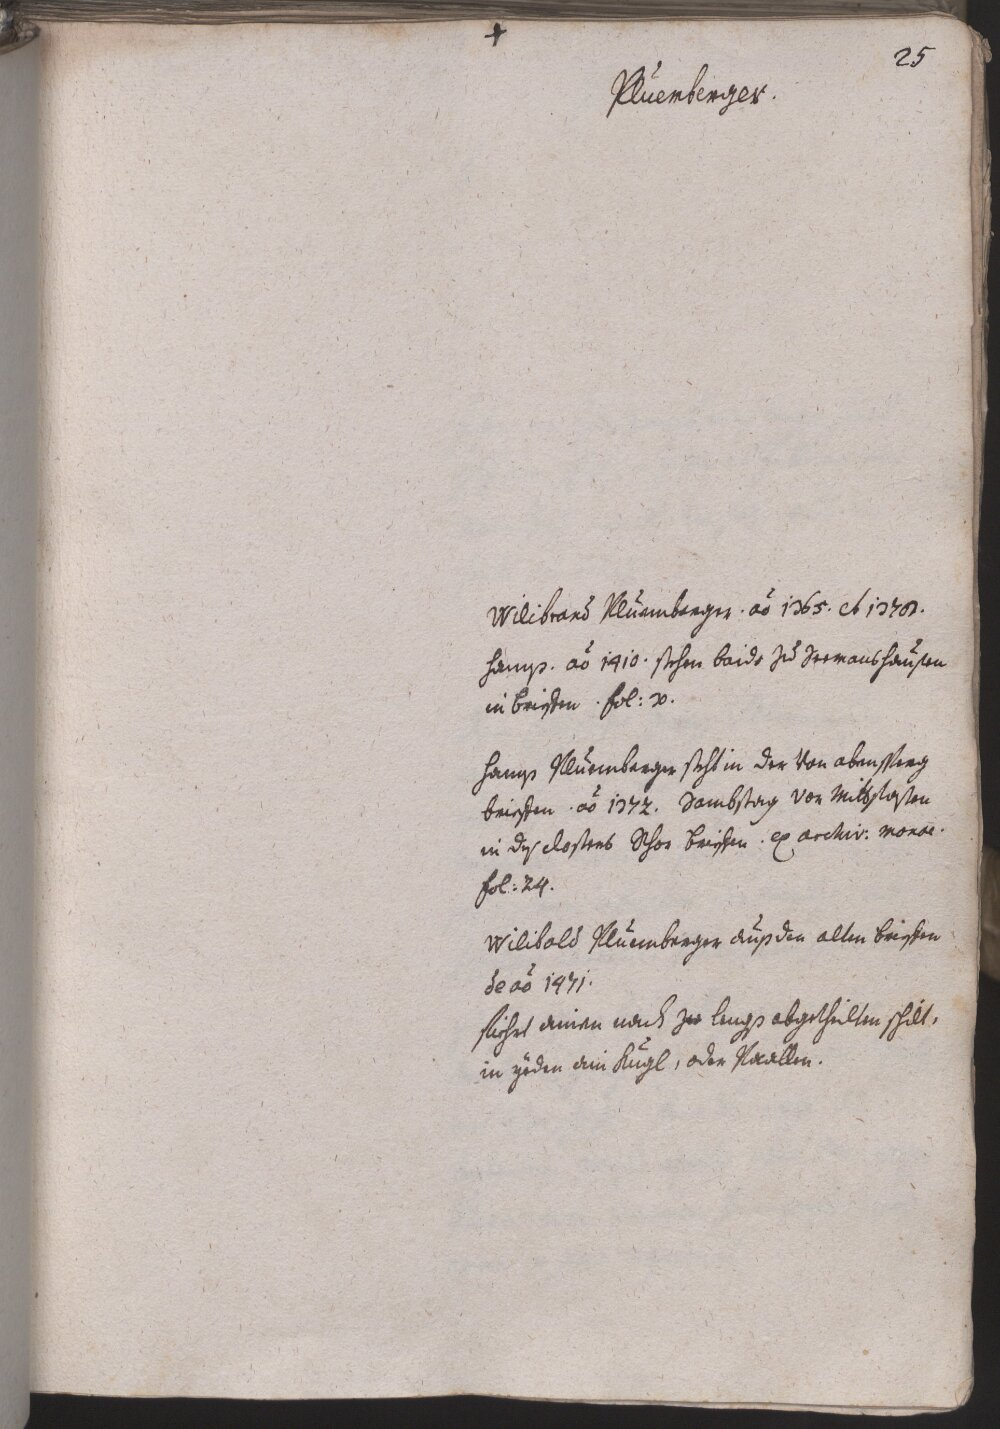 25
Pluemberger.
Wilibrand Pluemberger. ao 1365. et 1370.
Hanns. ao 1410. stehen baide zu Seemanshausen
in brieffen. fol: x.
Hanns Pluemberger steht in der von abensperg
brieffen. ao 1372. Sambstag vor Mitfasten
in deß closters Rhor brieffen. ex archiv: monac.
fol: 24.
Wilibold Pluemberger auß den alten brieffen
de ao 1471.
fiehrt ainen nach lengs abgethailten schilt,
in yeden ain Kugl, oder Paallen.